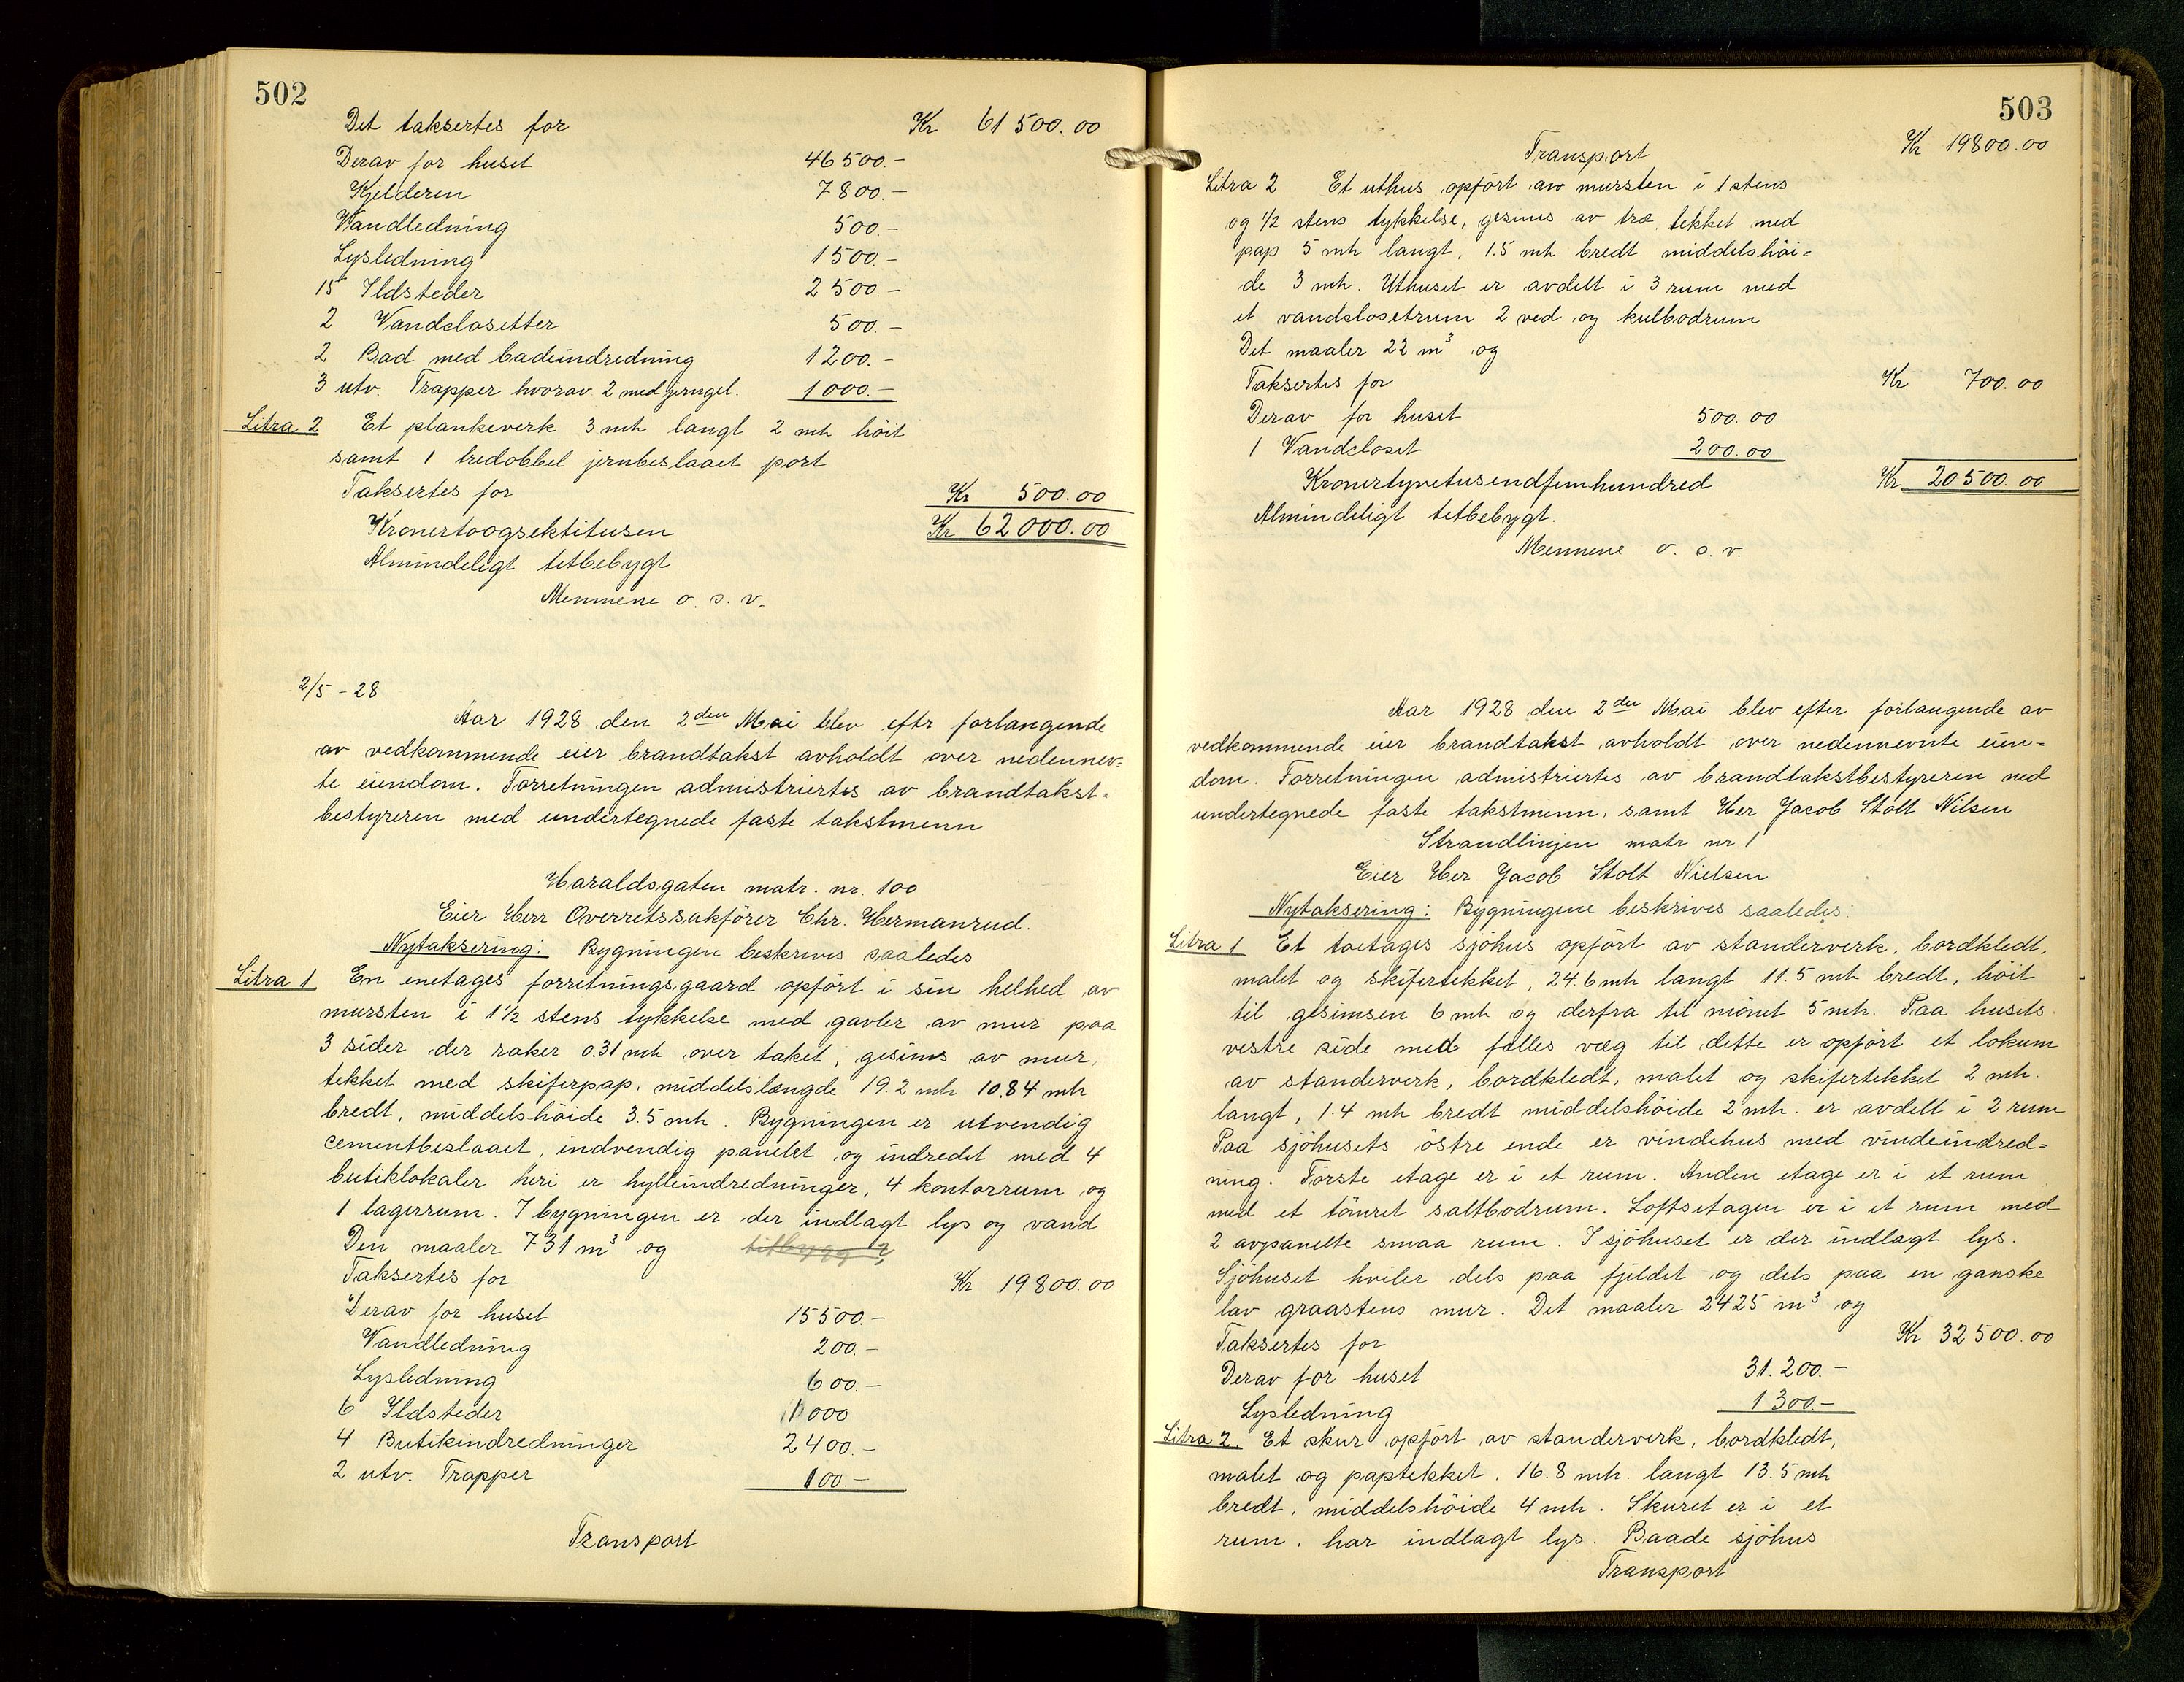 502
Det taksertes for Kr 61500.00
Derav for huset 46500.-
Kjelderen 7800.-
Vandledning 500.-
Lysledning 1500.-
15 Ildsteder 2500.-
2 Vandclosetter 500.-
2 Bad med badeindredning 1200.-
3 utv. Trapper hvorav 2 med jerngel. 1000.-
Litra 2 Et plankeverk 3 mtr langt 2 mtr höit
samt 1 tredobbel jernbeslaaet port
Taksertes for Kr 500.00
Kronertoogsektitusen Kr 62000.00
Almindeligt tetbebygt
Mennene o. s. v.
2/5-28
Aar 1928 den 2den Mai blev eftr forlangende
av vedkommende eier brandtakst avholdt over nedennev-
te eiendom. Forretningen admistriertes av brandtakst-
bestyreren med undertegnede faste takstmenn
Haraldsgaten matr. nr. 100
Eier Herr Overretssakförer Chr. Hermanrud.
Nytaksering: Bygningen beskrives saaledes
Litra 1 En enetages forretningsgaard opfört i sin helhed av
mursten i 1½ stens tykkelse med gavler av mur paa
3 sider der raker 0.31 mtr over taket, gesims av mur,
tekket med skiferpap, middelslængde 19.2 mtr 10.84 mtr
bredt, middelshöide 3.5 mtr. Bygningen er utvendig
cementbeslaaet, indvendig panelet og indredet med 4
butiklokaler heri er hylleindredninger, 4 kontorrum og
1 lagerrum. I bygningen er der indlagt lys og vand
Den maaler 731 m³ og
Taksertes for Kr 19800.00
Derav for huset 15500.-
Vandledning 200.-
Lysledning 600.-
6 Ildsteder 1000
4 Butikindredninger 2400.-
2 utv. Trapper 100.-
Transport
503
Transport Kr 19800.00
Litra 2 Et uthus opfört av mursten i 1 stens
og 1/2 stens tykkelse, gesims av træ, tekket med
pap 5 mtr langt, 1.5 mtr bredt middelshöi-
de 3 mtr. Uthuset er avdelt i 3 rum med
et vandclosetrum 2 ved og kulbodrum
Det maaler 22 m³ og
Taksertes for Kr 700.00
Derav for huset 500.00
1 Vandcloset 200.00
Kronertyvetusendfemhundred Kr 20500.00
Almindeligt tetbebygt.
Mennene o. s. v.
Aar 1928 den 2den Mai blev efter forlangende av
vedkommende eier brandtakst avholdt over nedennevnte eien-
dom. Forretningen admistriertes av brandtakstbestyreren med
undertegnede faste takstmenn, samt Her Jacob Stolt Nilsen
Strandlinjen matr nr 1
Eier Her Jacob Stolt Nielsen
Nytaksering: Bygningene beskrives saaledes:
Litra 1 Et toetages sjöhus opfört av standerverk, bordkledt,
malet og skifertekket, 24.6 mtr langt 11.5 mtr bredt, höit
til gesimsen 6 mtr og derfra til mönet 5 mtr. Paa husets
vestre side med felles væg til dette er opfört et lokum
av standerverk, bordkledt, malet og skifertekket 2 mtr.
langt, 1.4 mtr bredt middelshöide 2 mtr. er avdelt i 2 rum
Paa sjöhusets östre ende er vindehus med vindeindred-
ning. Förste etage er i et rum. Anden etage er i et rum
med et tömret saltbodrum. Loftsetagen er i et rum med
2 avpanelte smaa rum. I sjöhuset er der indlagt lys.
Sjöhuset hviler dels paa fjeldet og dels paa en ganske
lav graastens mur. Det maaler 2425 m³ og
Taksertes for Kr 32500.00
Derav for huset 31.200.-
Lysledning 1300.-
Litra 2. Et skur opfört av standerverk, bordkledt,
malet og paptekket, 16.8 mtr. langt 13.5 mtr
bredt, middelshöide 4 mtr. Skuret er i et
rum, har indlagt lys. Baade sjöhus
Transport